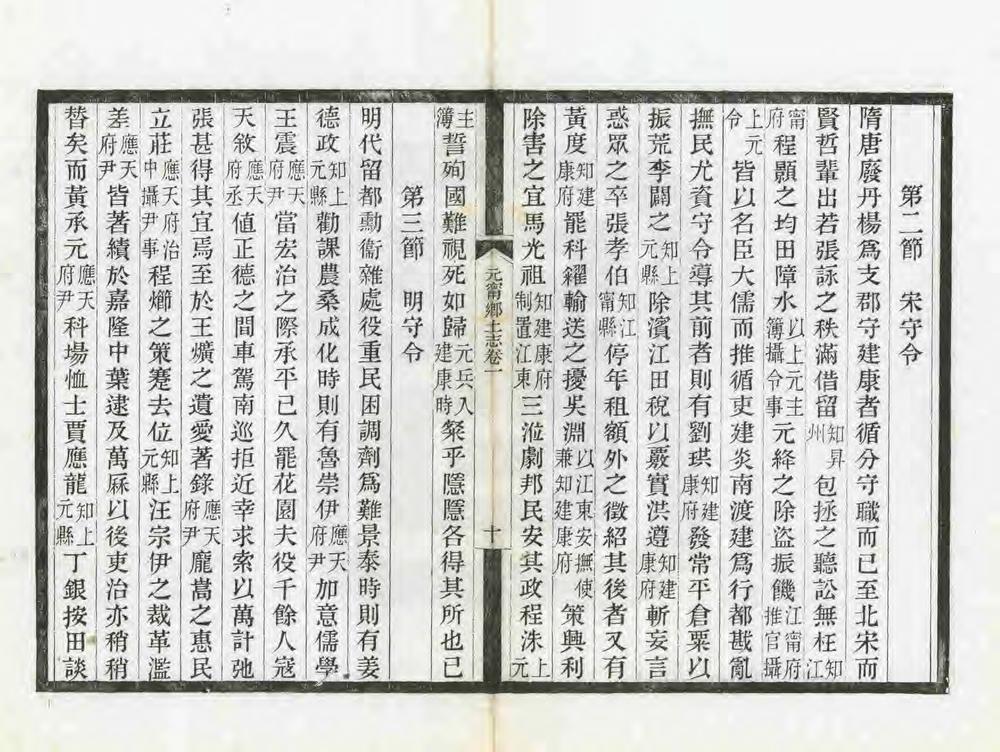 第二節　宋守令
隋唐廢丹楊爲支郡守建康者循分守職而已至北宋而
賢哲輩出若張詠之秩滿借留知昇州包拯之聽訟無枉知江
甯府程顥之均田障水以上元主簿攝令事元絳之除盜振饑江甯府推官攝
上元令皆以名臣大儒而推循吏建炎南渡建爲行都戡亂
撫民尤資守令導其前者則有劉珙知建康府發常平倉粟以
振荒李闢之知上元縣除濱江田稅以覈實洪遵知建康府斬妄言
惑眾之卒張孝伯知江甯縣停年租額外之徵紹其後者又有
黃度知建康府罷科糴輸送之擾吳淵以江東安撫使兼知建康府策興利
除害之宜馬光祖知建康府制置江東三涖劇邦民安其政程洙上元
元甯鄉土志卷一　十
主簿誓殉國難視死如歸元兵入建康時粲乎隱隱各得其所也已
第三節　明守令
明代留都勳衞雜處役重民困調劑爲難景泰時則有姜
德政知上元縣勸課農桑成化時則有魯崇伊應天府尹加意儒學
王震應天府尹當宏治之際承平已久罷花園夫役千餘人寇
天敘應天府丞値正德之間車駕南巡拒近幸求索以萬計弛
張甚得其宜焉至於王爌之遺愛著錄應天府尹龎嵩之惠民
立莊應天府治中攝尹事程㷼之策蹇去位知上元縣汪宗伊之裁革濫
差應天府尹皆著績於嘉隆中葉逮及萬厤以後吏治亦稍稍
替矣而黃承元應天府尹科場恤士賈應龍知上元縣丁銀按田談